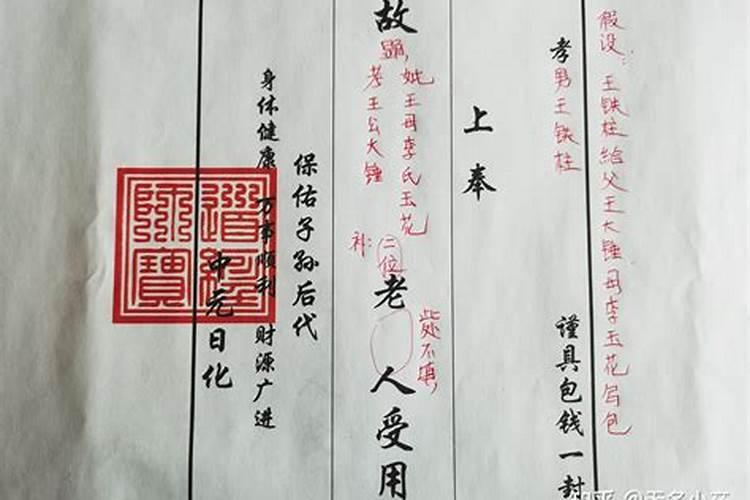 假设：王铁柱给父王大锤母李玉花写包
孝男王铁柱 谨具包钱一封
上奉
此处不填，
妣王母李氏玉花
故显，老人受用
考王公大锤
补：二位
保佑子孙后代
身体健康 万事顺利 财源广进
中元日化
道經師寶
知乎